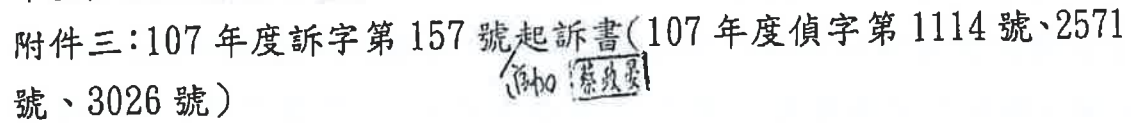 附件三：107 年度訴字第 157 號起訴書(107 年度偵字第 1114 號、2571
號、3026 號)